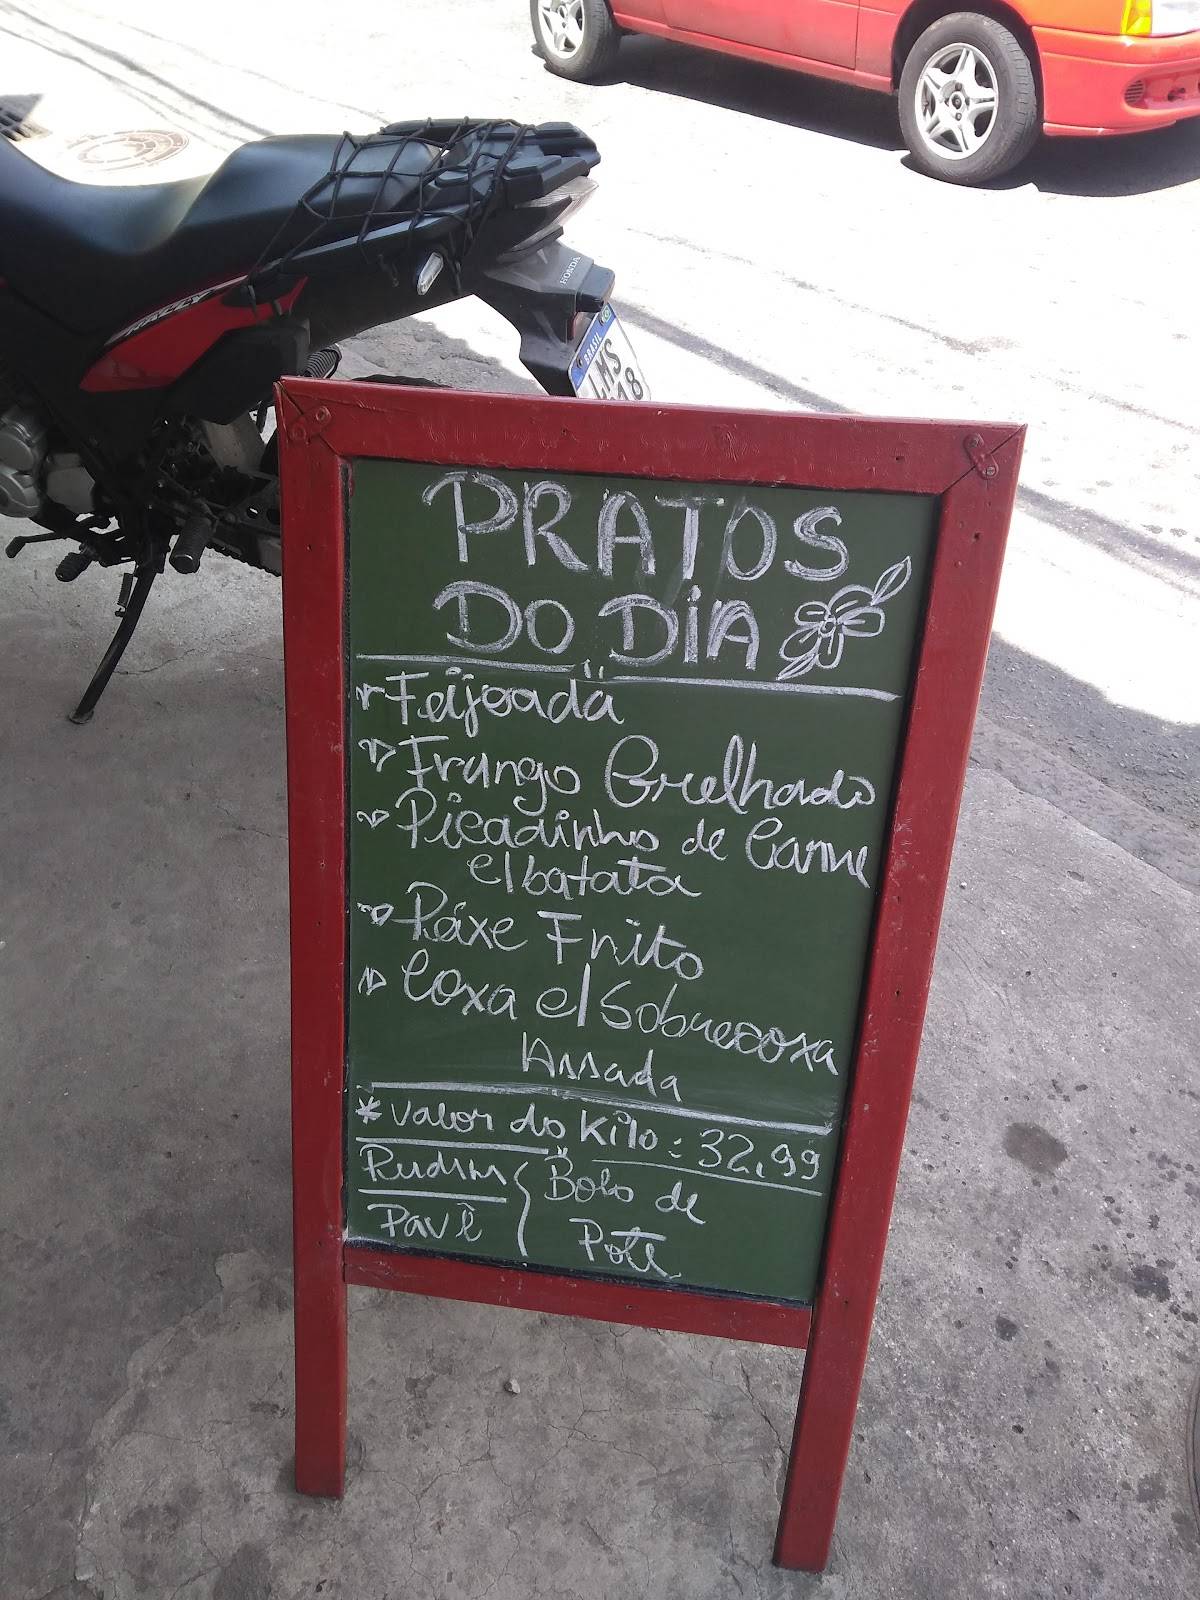 HONDA
RALLY
BRASIL
LMS
18
PRATOS
DO DIA
Feijoada
Frango Grelhado
Picadinho de Carne
c/batata
Peixe Frito
Coxa c/Sobrecoxa
Assada
* Valor do Kilo: 32,99
Pudim
Pavê
Bolo de
Pote